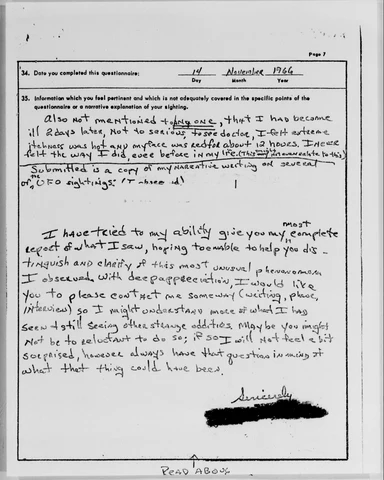 Page 7
34. Date you completed this questionnaire: 14 November 1966
Day Month Year
35. Information which you feel pertinent and which is not adequately covered in the specific points of the
questionnaire or a narrative explanation of your sighting.
Also not mentioned to any one, that I had become
ill 2 days later, Not to serious to see doctor, I felt extreme
itchness was hot and my face was red for about 12 hours. I never
felt the way I did, ever before in my life. (This might in
Submitted is a copy of my narrative writing on several
or the UFO sightings.
I have tried to my ability give you my most complete
report of what I saw, hoping to enable to help you dis-
tinguish and clarify if this most unusual phenomenon
I observed. With deep appreciation, I would like
You to please contact me someway (writing, phone,
interview) so I might understand more of what I had
seen & still seeing other strange oddities. May be you might
Not be to reluctant to do so; if so I will not feel a bit
surprised, however always have that question in mind of
what that thing could have been.
Sincerely
READ ABOVE